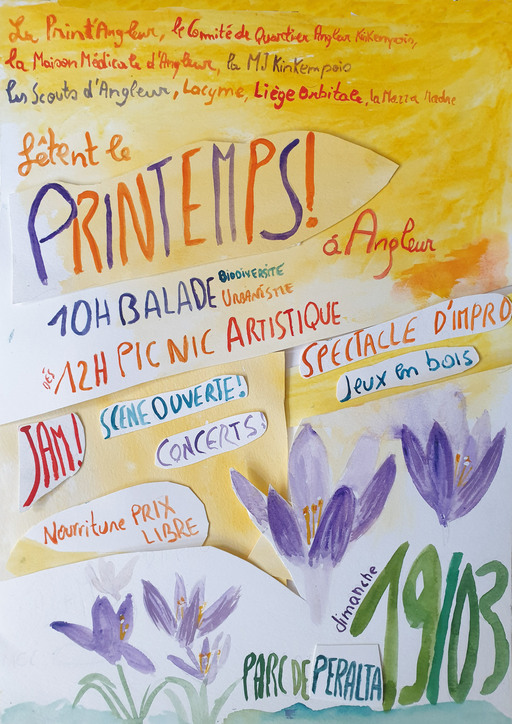 La Print'Angleur, le Comité de Quartier Angleur Kinkempois,
la Maison Médicale d'Angleur, la MJ Kinkempois
les Scouts d'Angleur, Lacyme, Liège Orbitale, la Mazza Madre
fêtent le
PRINTEMPS!
à Angleur
10H BALADE BIODIVERSITÉ
URBANISME
DÈS 12H PIC NIC ARTISTIQUE
SPECTACLE D'IMPRO
Jeux en bois
SCÈNE OUVERTE!
JAM!
CONCERTS!
Nourriture PRIX
LIBRE
dimanche 19/03
PARC DE PERALTA